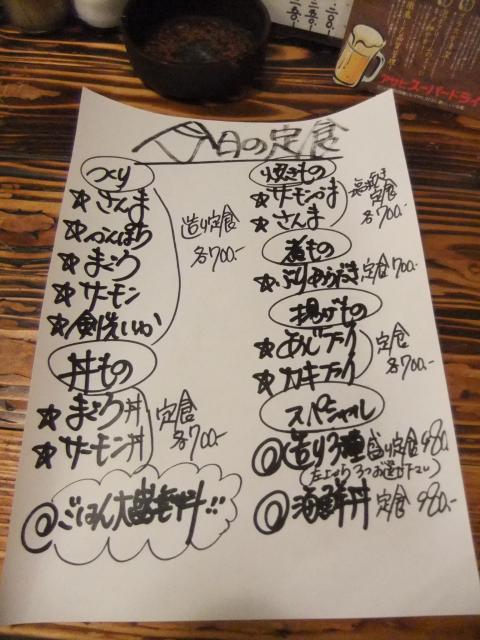 今日の定食
つくり
☆さんま
☆かんぱち
☆まぐろ
☆サーモン
☆剣先いか
造り定食
各700.-
丼もの
☆まぐろ丼
☆サーモン丼
定食
各700.-
◎ごはん大盛無料!!!
焼きもの
☆サーモンかま
☆さんま
塩焼き
定食
各700.-
煮もの
☆ぶりあらだき 定食700.-
揚げもの
☆あじフライ
☆カキフライ
定食
各700.-
スペシャル
◎造り3種盛り定食980.-
(左上より3つお選び下さい)
◎海鮮丼定食 980.-
アサヒスーパードライ